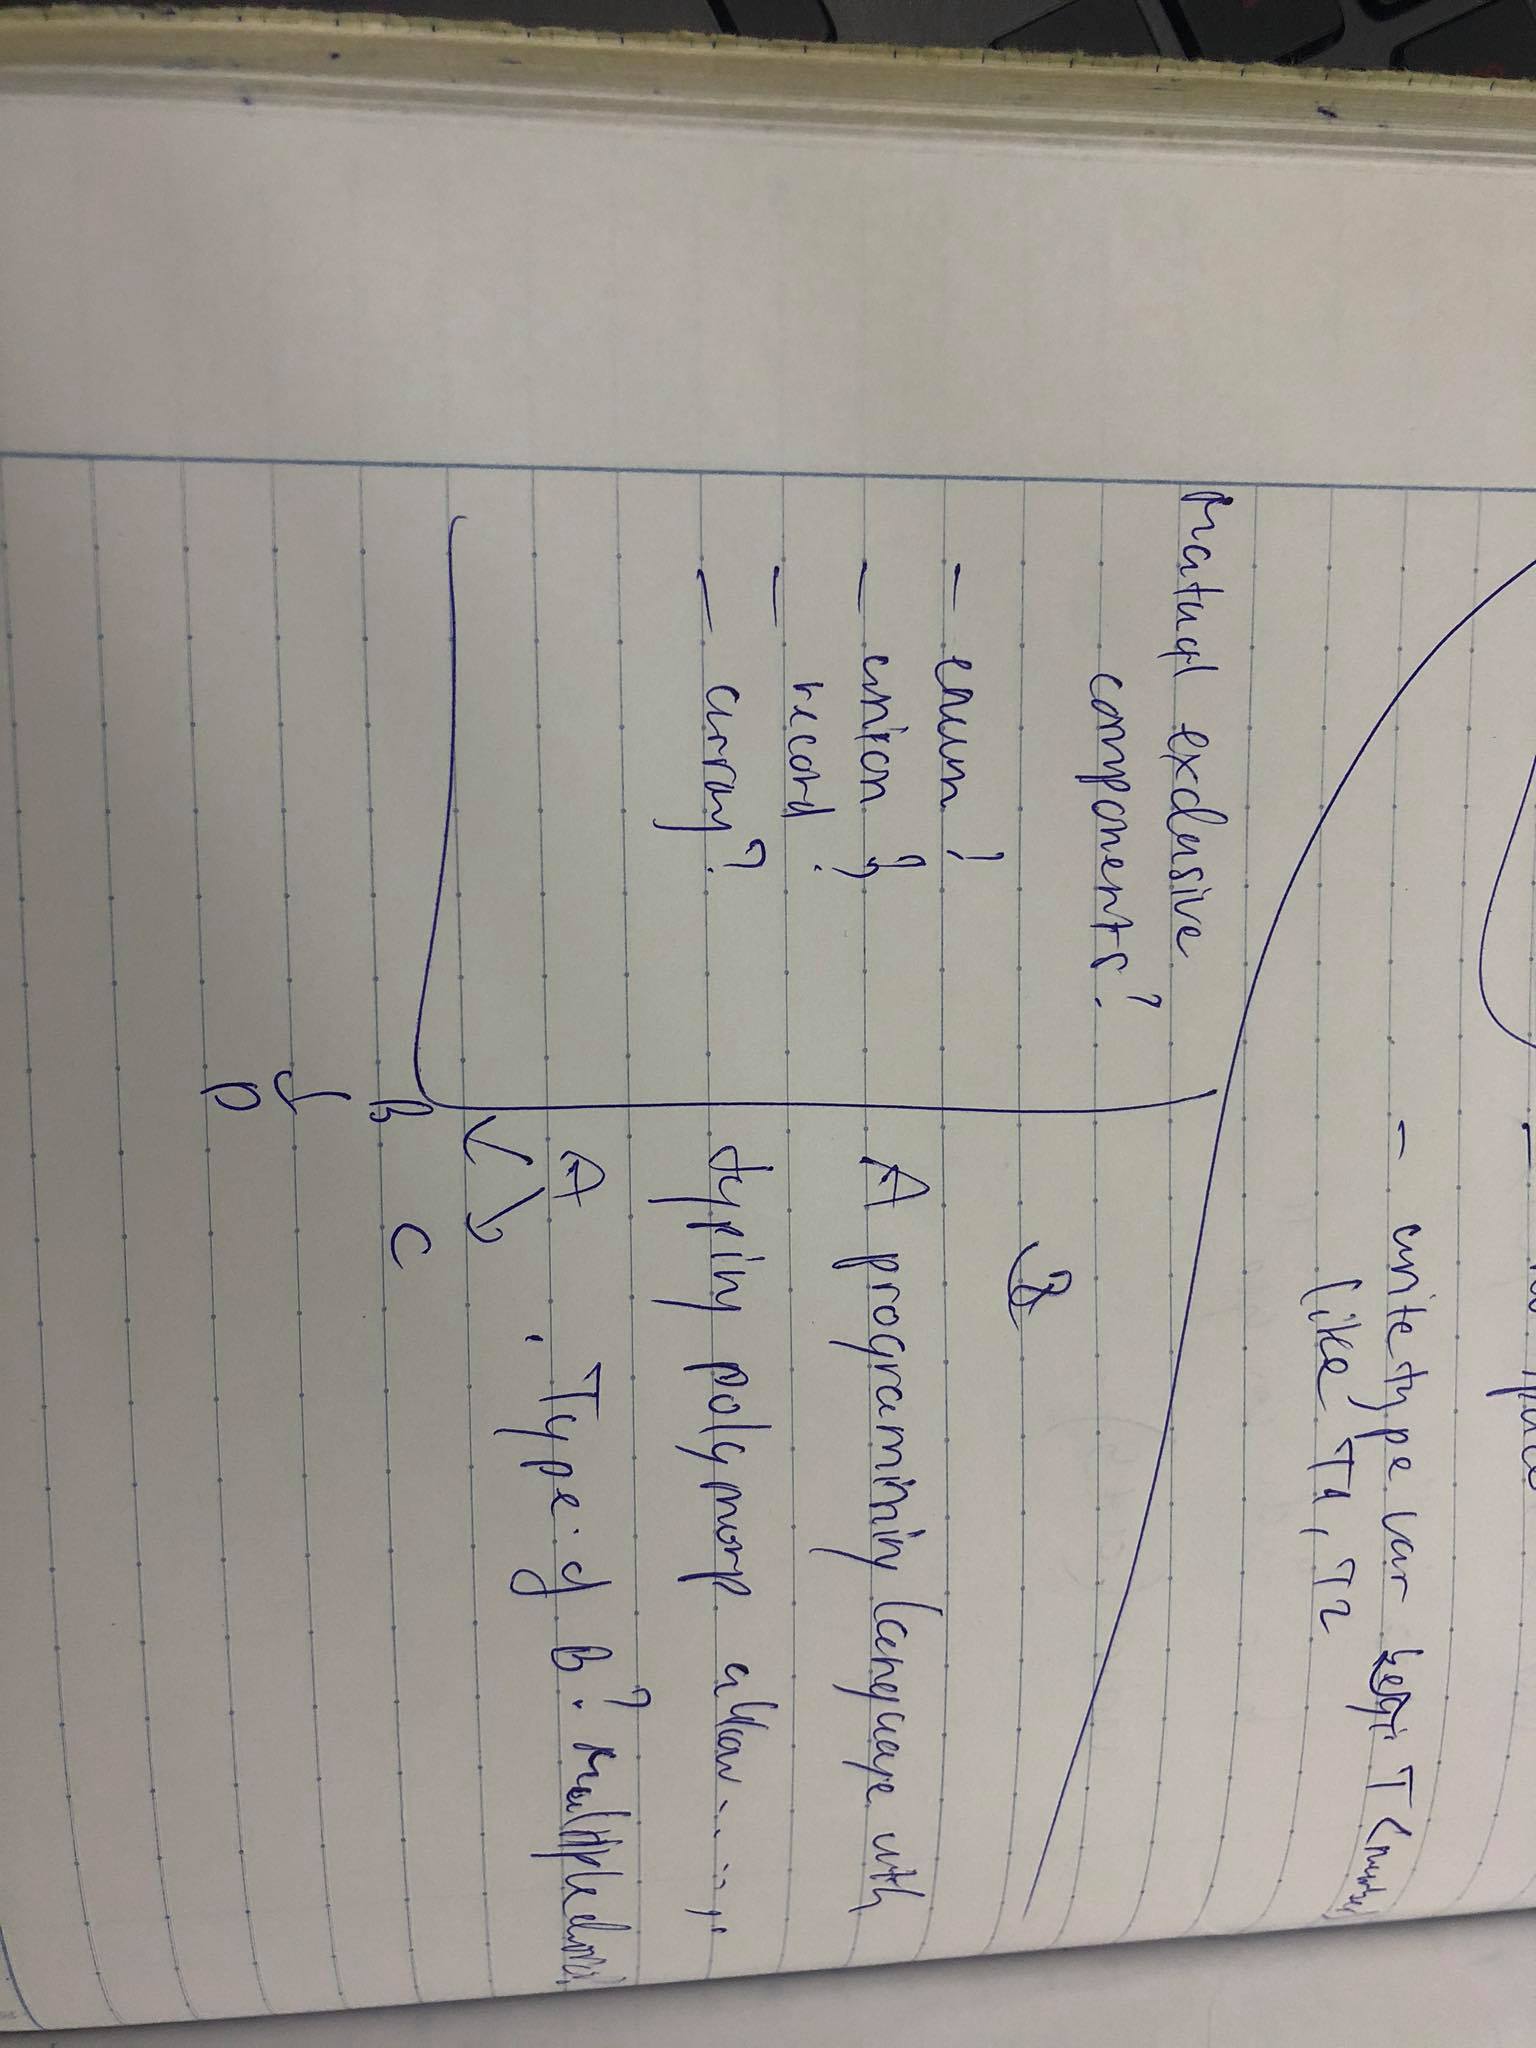 - write type var T<number>
like T1, T2
Matual exclusive
components?
- enum?
- union?
- record?
- array?
A programining language with
typing polymorp allow.....,..
A . Type of B? Multiple choice?
B C
D